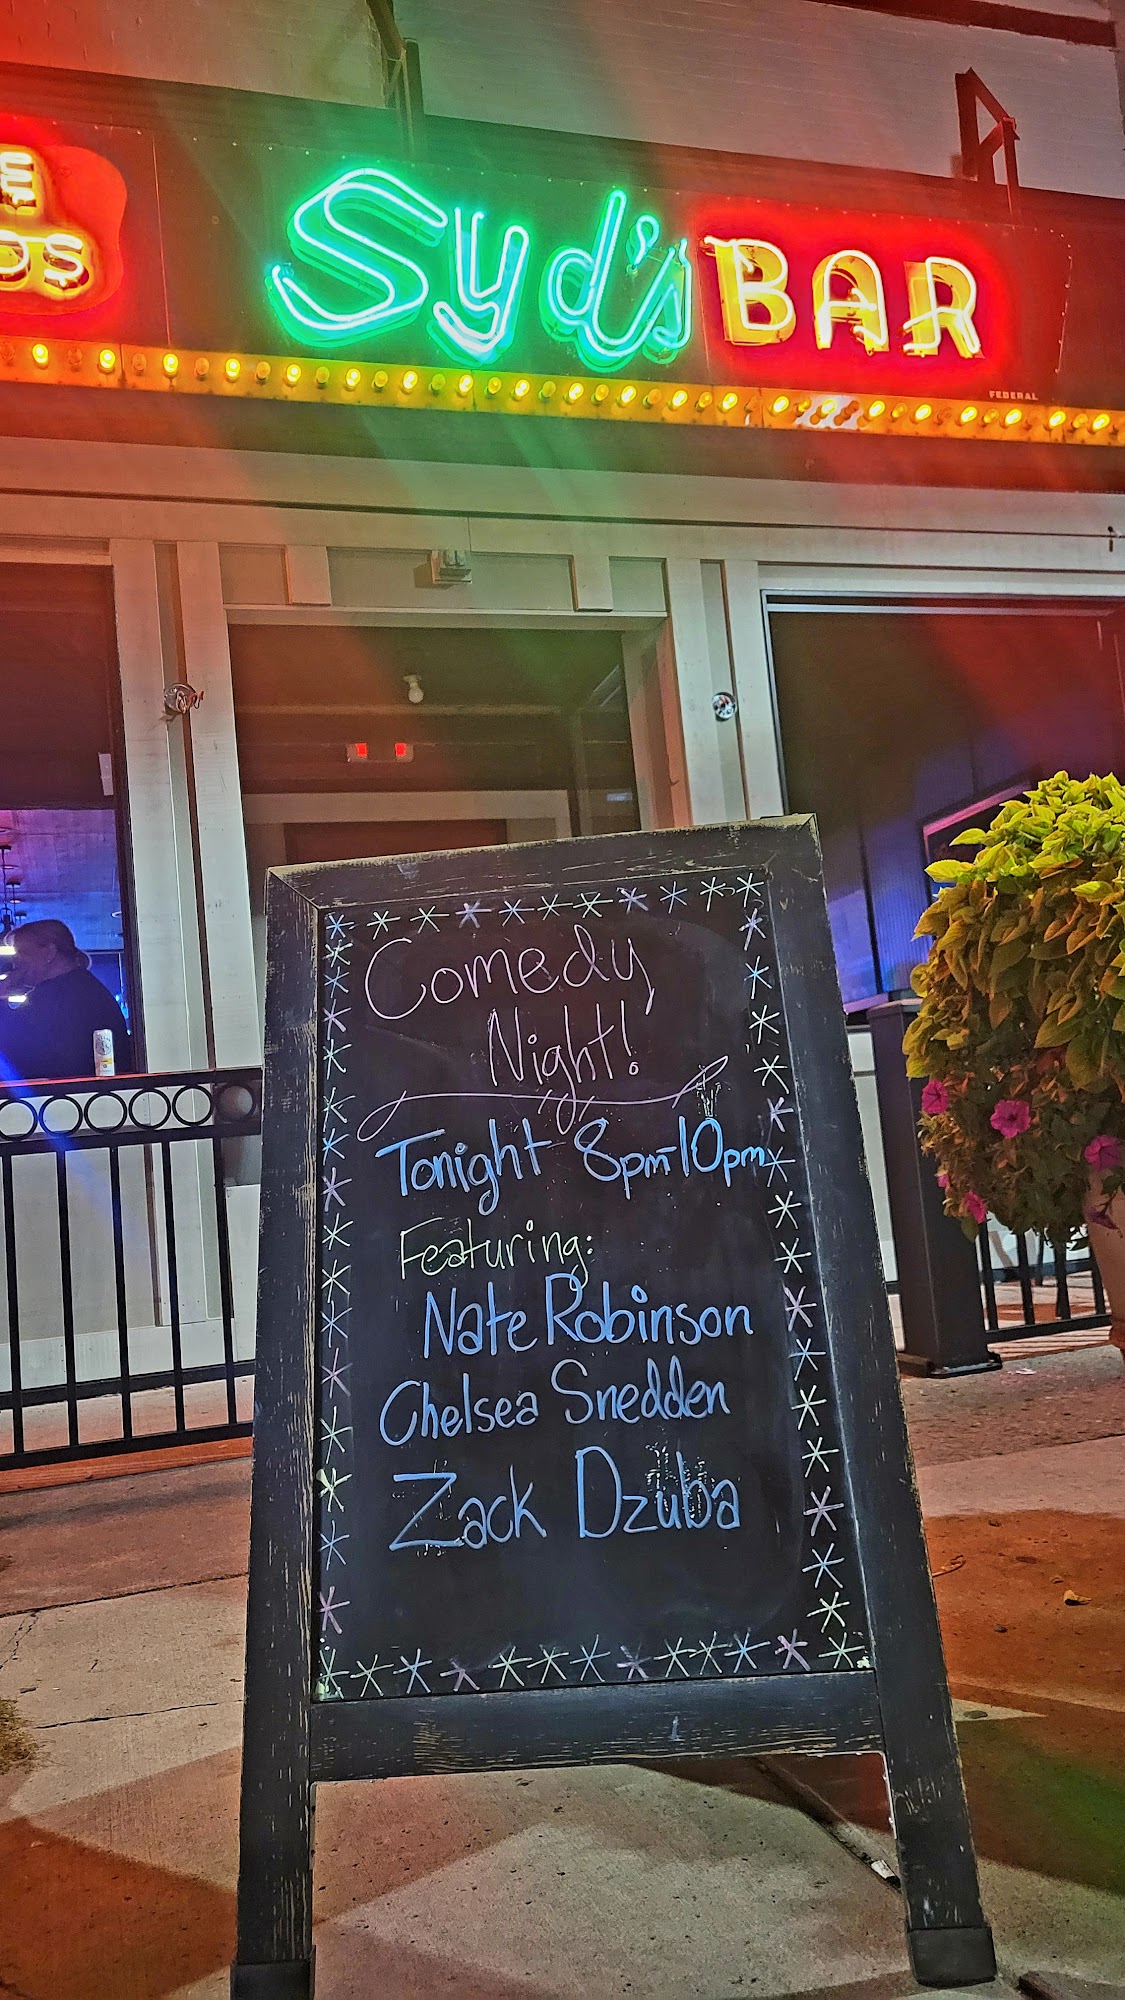 Syd's BAR
FEDERAL
Comedy
Night!
Tonight 8pm-10pm
Featuring:
Nate Robinson
Chelsea Snedden
Zack Dzuba